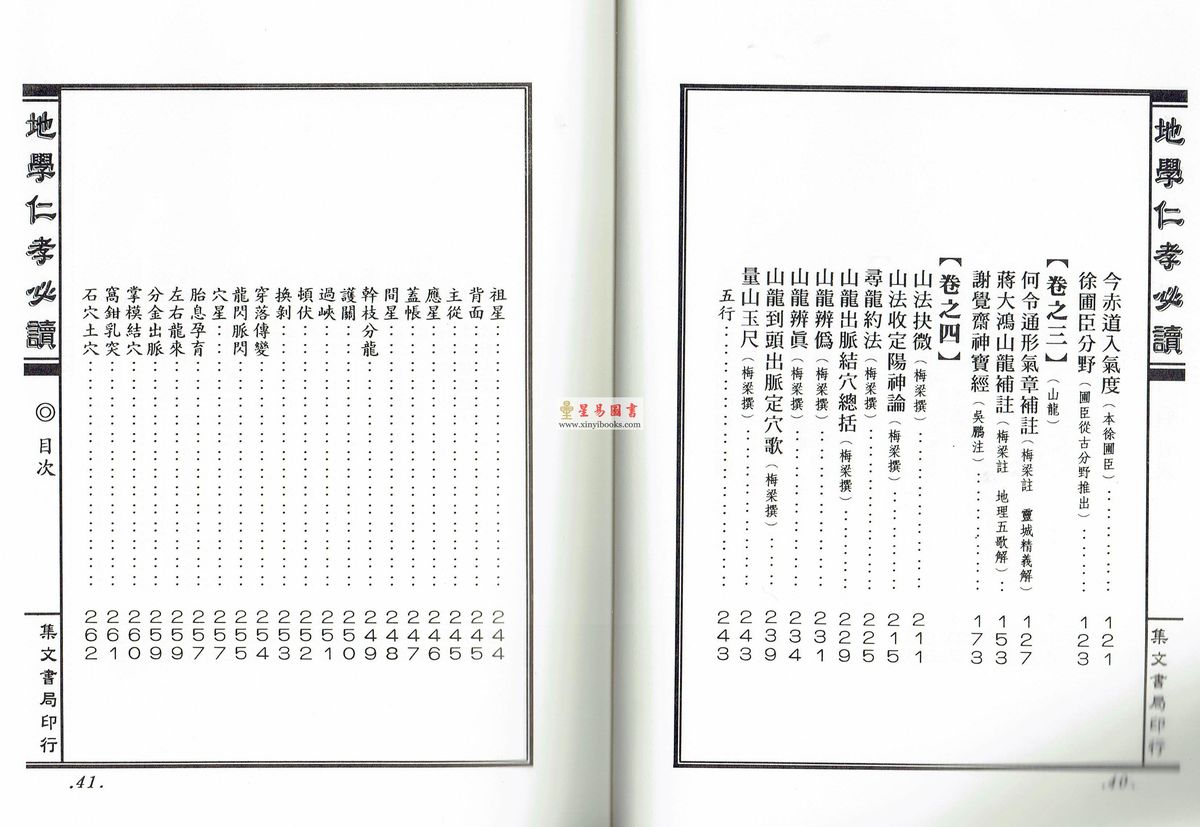 地學仁孝必讀
集文書局印行
.40.
今赤道入氣度（本徐圃臣）…………121
徐圃臣分野（圃臣從古分野推出）……123
【卷之三】（山龍）
何令通形氣章補註（梅梁註　靈城精義解）127
蔣大鴻山龍補註（梅梁註　地理五歌解）…153
謝覺齋神寶經（吳鵬注）…………173
【卷之四】
山法抉微（梅梁撰）…………211
山法收定陽神論（梅梁撰）…………215
尋龍約法（梅梁撰）…………225
山龍出脈結穴總括（梅梁撰）…………229
山龍辨僞（梅梁撰）…………231
山龍辨眞（梅梁撰）…………234
山龍到頭出脈定穴歌（梅梁撰）……239
量山玉尺（梅梁撰）…………243
五行…………243
祖星…………244
背面…………245
主從…………245
應星…………246
蓋帳…………247
問星…………248
幹枝分龍…………249
護關…………250
過峽…………251
頓伏…………252
換剝…………253
穿落傳變…………254
龍閃脈閃…………255
穴星…………257
胎息孕育…………257
左右龍來…………259
分金出脈…………259
掌模結穴…………260
窩鉗乳突…………261
石穴土穴…………262
地學仁孝必讀
◎目次
集文書局印行
.41.
星易圖書
www.xinyibooks.com